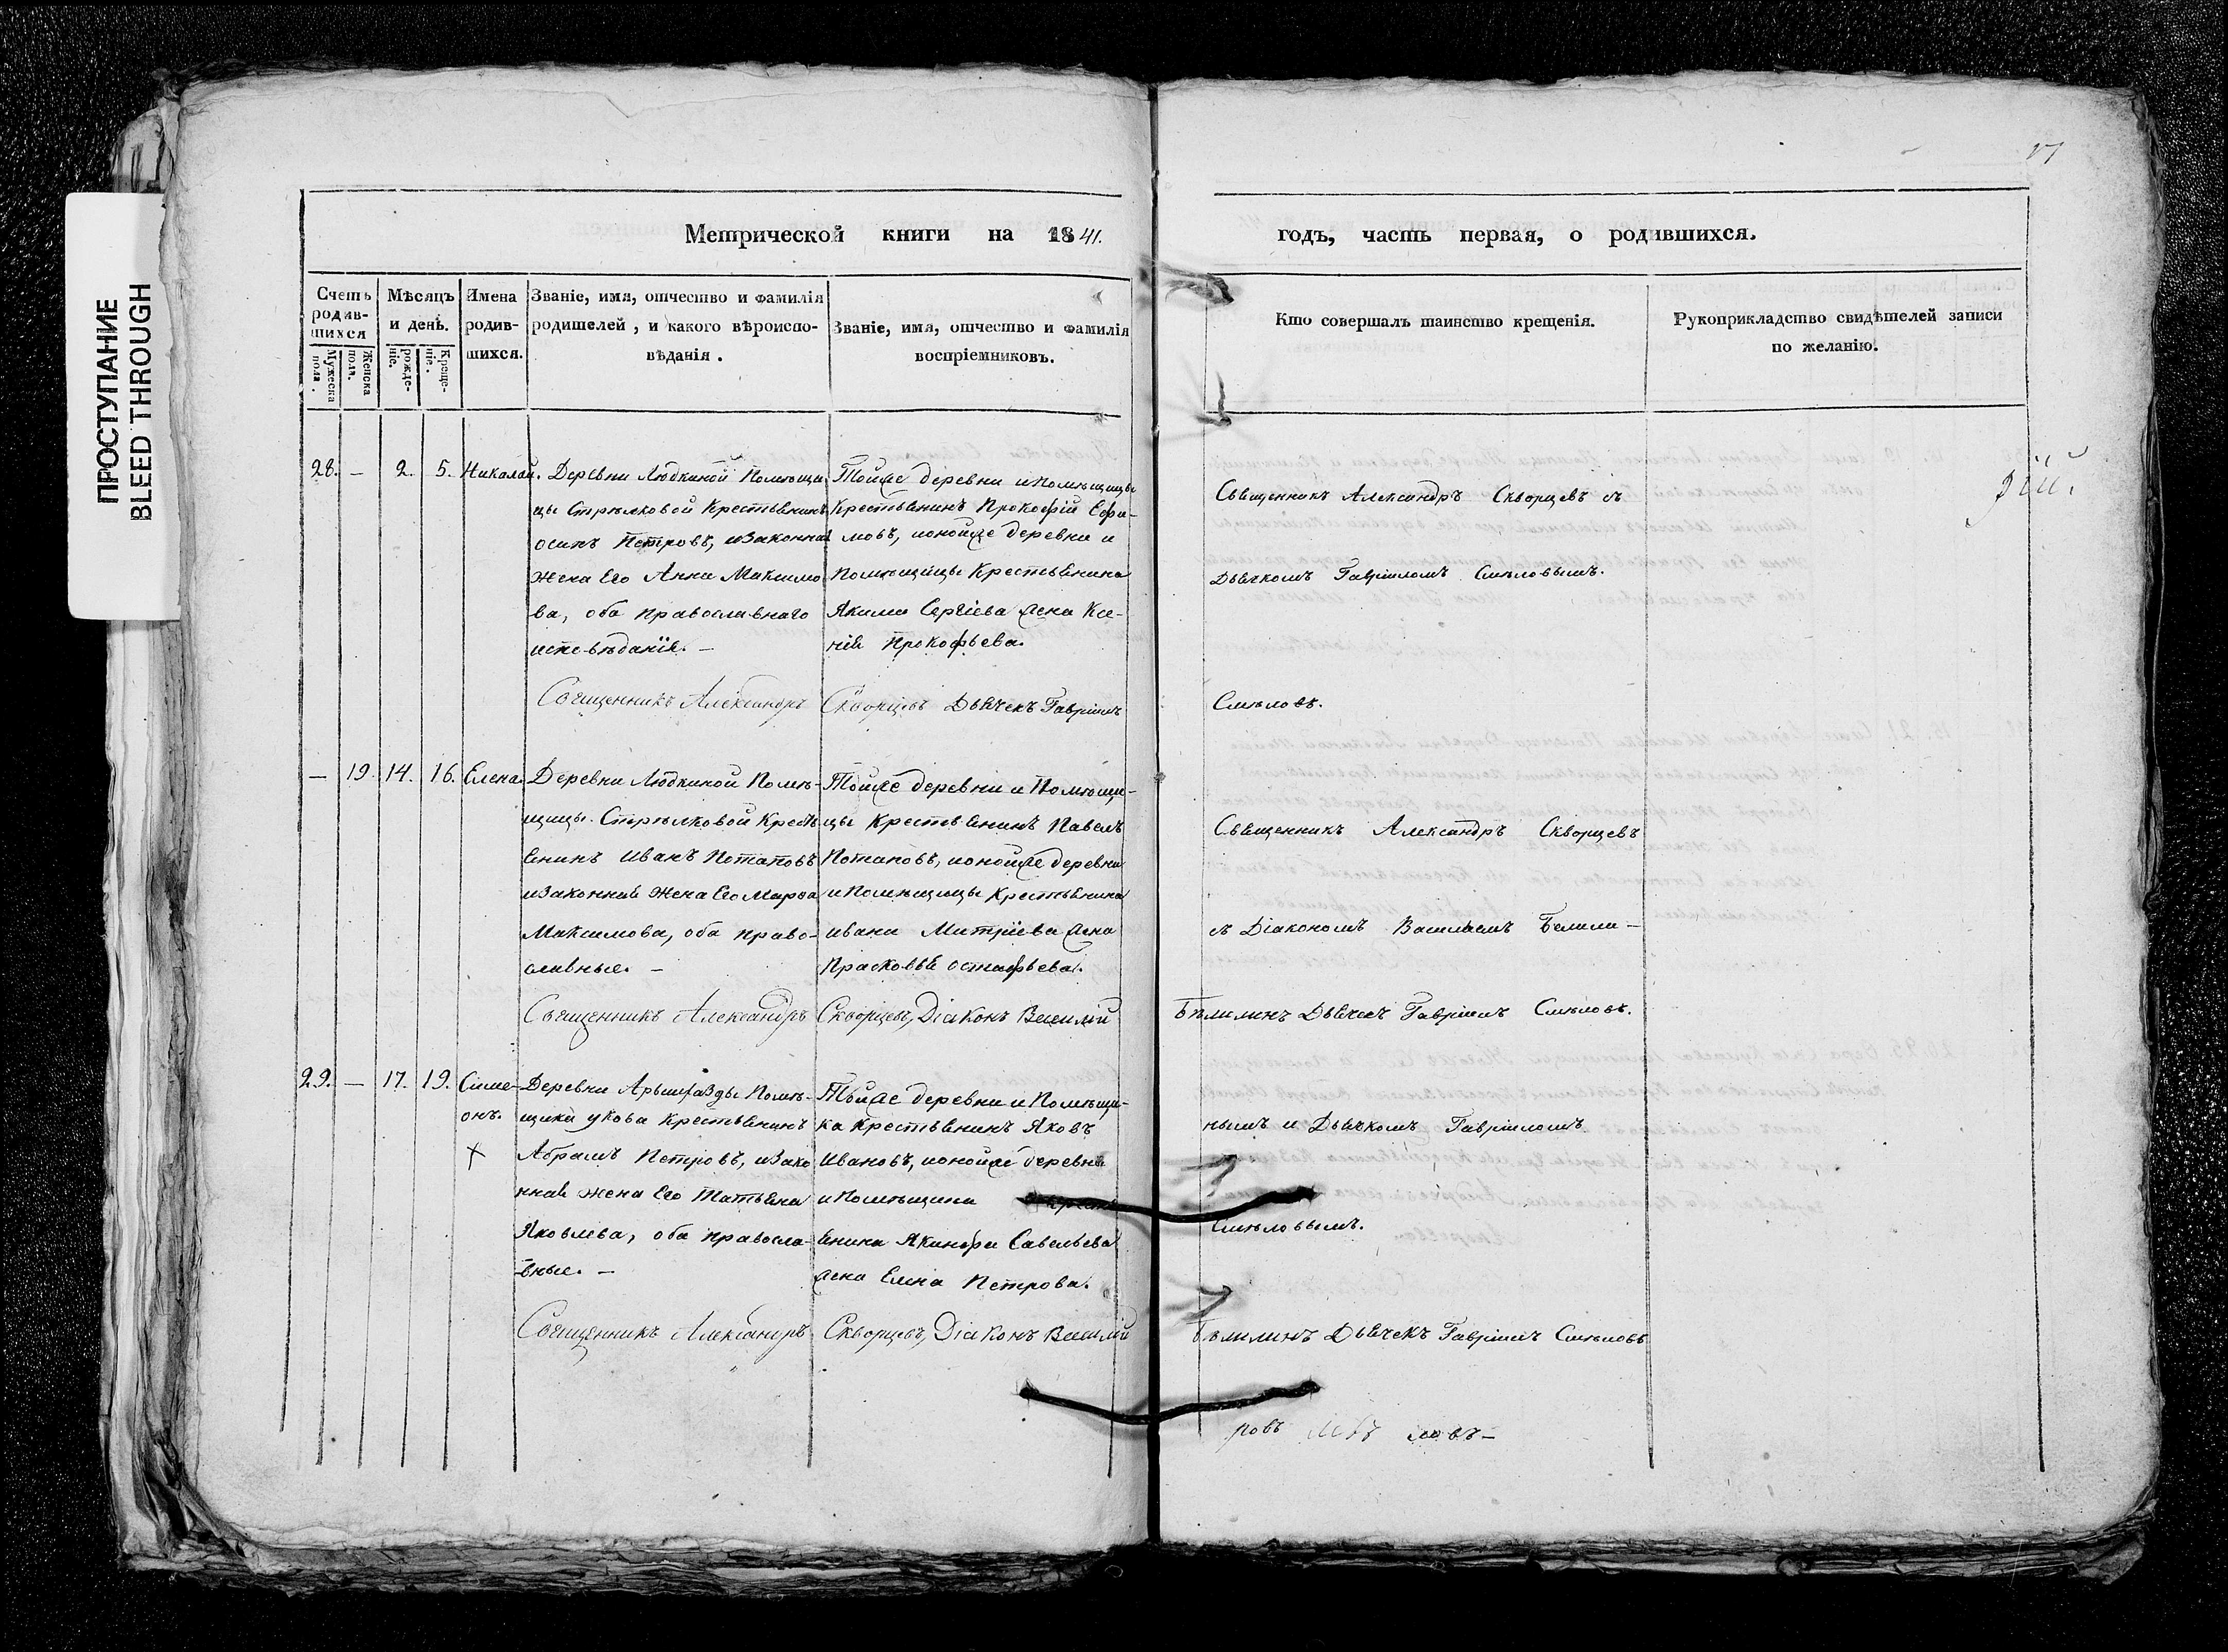 ПРОСТУПАНИЕ
BLEED THROUGH
Метрической книги на 1841.
годъ, часть первая, о родившихся.
Счетъ родившихся
Мужеска пола.
Женска пола.
Мѣсяцъ и день.
рожденіе.
Крещеніе.
Имена родившихся.
Званіе, имя, отчество и фамилія
родителей, и какого вѣроиспо-
вѣданія.
Званіе, имя, отчество и фамилія
воспріемниковъ.
Кто совершалъ таинство крещенія.
Рукоприкладство свидѣтелей записи
по желанію.
28. — 2. 5. Николай.
Деревни Людкиной Помѣщи
цы Стрѣлковой Крестьянинъ
осипъ Петровъ, изаконная
жена Его Анна Максимо
ва, оба православнаго
исповѣданія. —
Тойже деревни ипомѣщицы
Крестьянинъ Прокофій Ефи-
мовъ, ионойже деревни и
Помѣщицы Крестьянина
Якима Сергіева жена Ксе-
нія Прокофьева.
Священникъ Александръ Скворцевъ съ
Дьячкомъ Гавріиломъ Смѣловымъ.
Священникъ Александръ Скворцевъ Дьячекъ Гавріилъ Смѣловъ.
— 19. 14. 16. Елена.
Деревни Людкиной Помѣ-
щицы Стрѣлковой Кресть
янинъ иванъ Потаповъ
изаконная жена Его Марѳа
Максимова, оба право-
славные. —
Тойже деревни и Помѣщи-
цы Крестьянинъ Павелъ
Потаповъ, ионойже деревни
и Помѣщицы Крестьянина
ивана Митріева жена
Прасковья остафьева.
Священникъ Александръ Скворцевъ
съ Діакономъ Васильемъ Белили-
Священникъ Александръ Скворцевъ, Діаконъ Василій Бѣлилинъ Дьячекъ Гавріилъ Смѣловъ.
29. — 17. 19. Симе-
онъ.
Деревни Помѣ-
щика укова Крестьянинъ
Абрамъ Петровъ, изако
нная жена Его Татьяна
Яковлева, оба правосла-
вные. —
Тойже деревни и Помѣщи-
ка Крестьянинъ Яковъ
Ивановъ, ионойже деревни
и Помѣщика кресть
янина Якинфа Савельева
жена Елена Петрова.
нымъ и Дьячкомъ Гавріиломъ
Смѣловымъ.
Священникъ Александръ Скворцевъ, Діаконъ Василій Бѣлилинъ Дьячекъ Гавріилъ Смѣловъ
ровъ